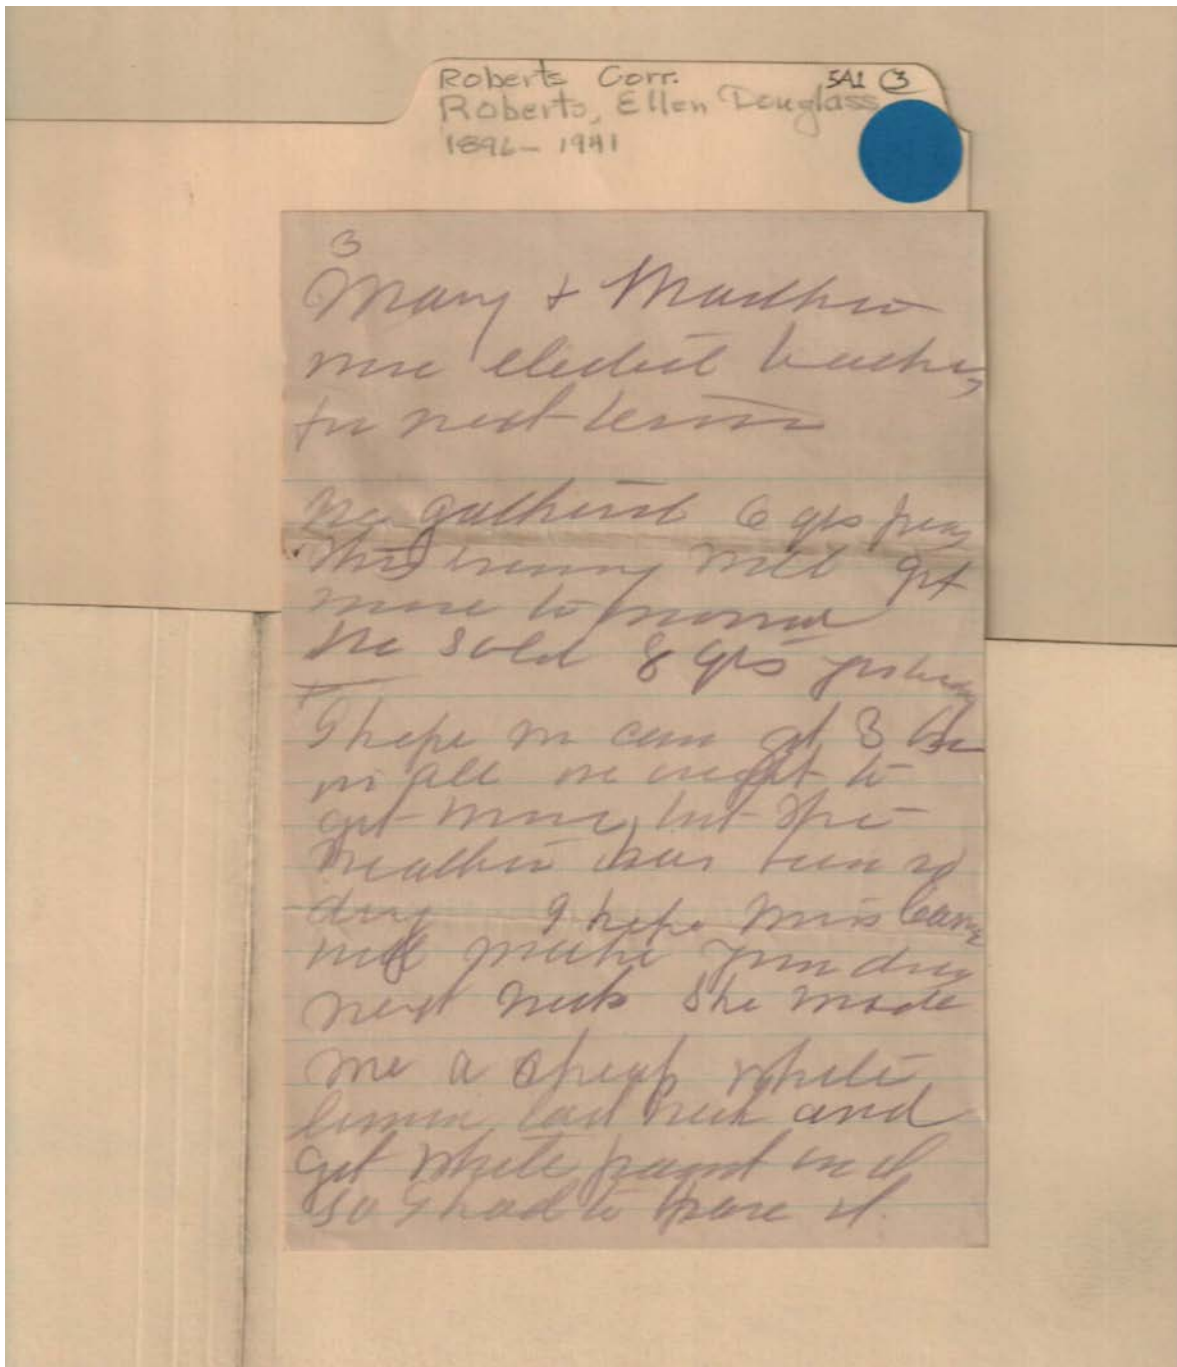 Roberts Corr. 5A1 3
Roberts, Ellen Douglass
1896-1941
3
Mary &
were elected teachers
for next term
We gathered 6 qts
this evening will get
more to morrow
We sold 8 qts yesterday
I hope we can get 3
in all we ought to
get more, but the
weather has been so
dry I hope Miss
will make your dress
next week She made
me a cheap white
last week and
get white paint on it
so I had to have it.